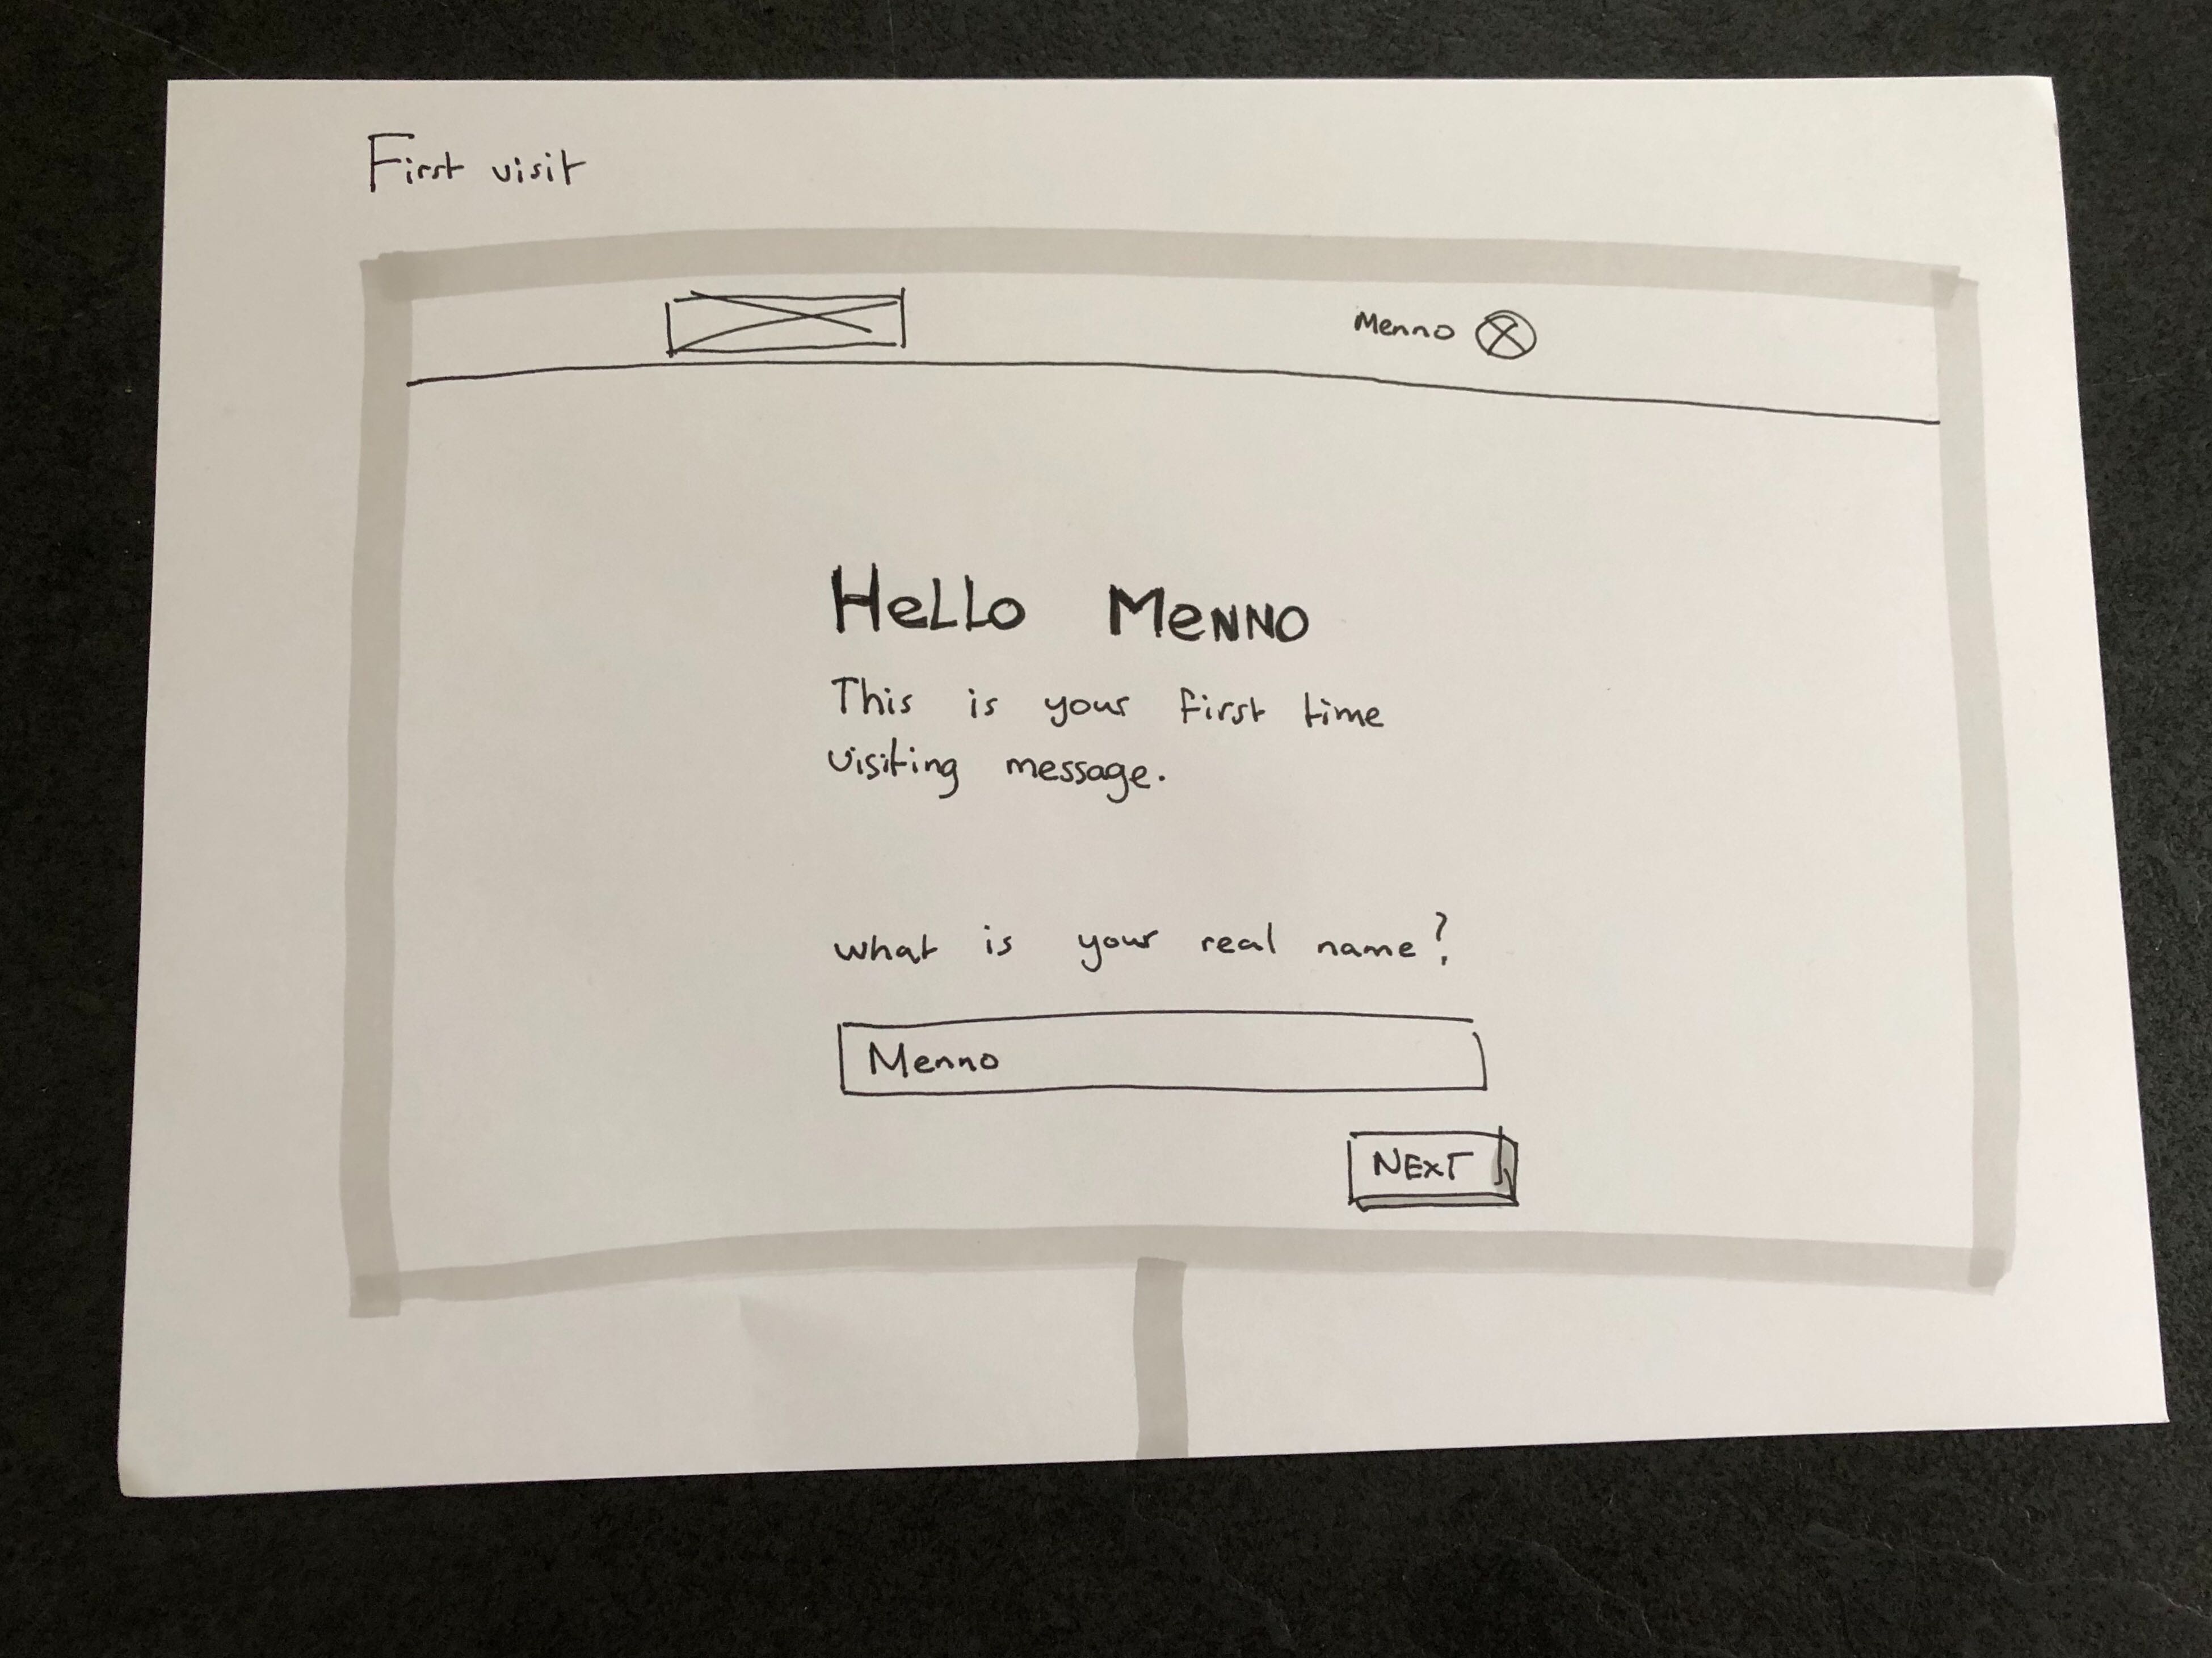 First visit
Menno
Hello Menno
This is your first time
visiting message.
what is your real name?
Menno
NEXT